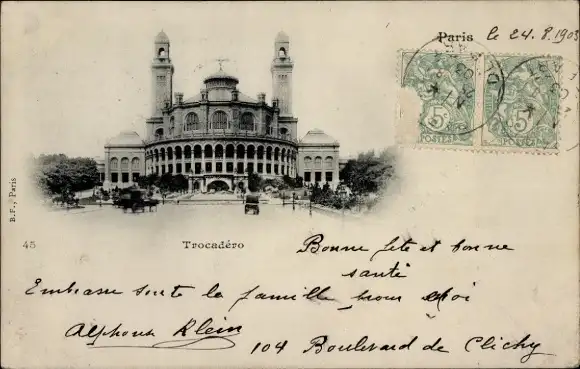 Paris le 24.8.1903
5c
POSTES
5c
POSTES
B.F., Paris
45
Trocadéro
Bonne fête et bonne
santé
Embrasse toute la famille pour moi
Alphons Klein
104 Boulevard de Clichy